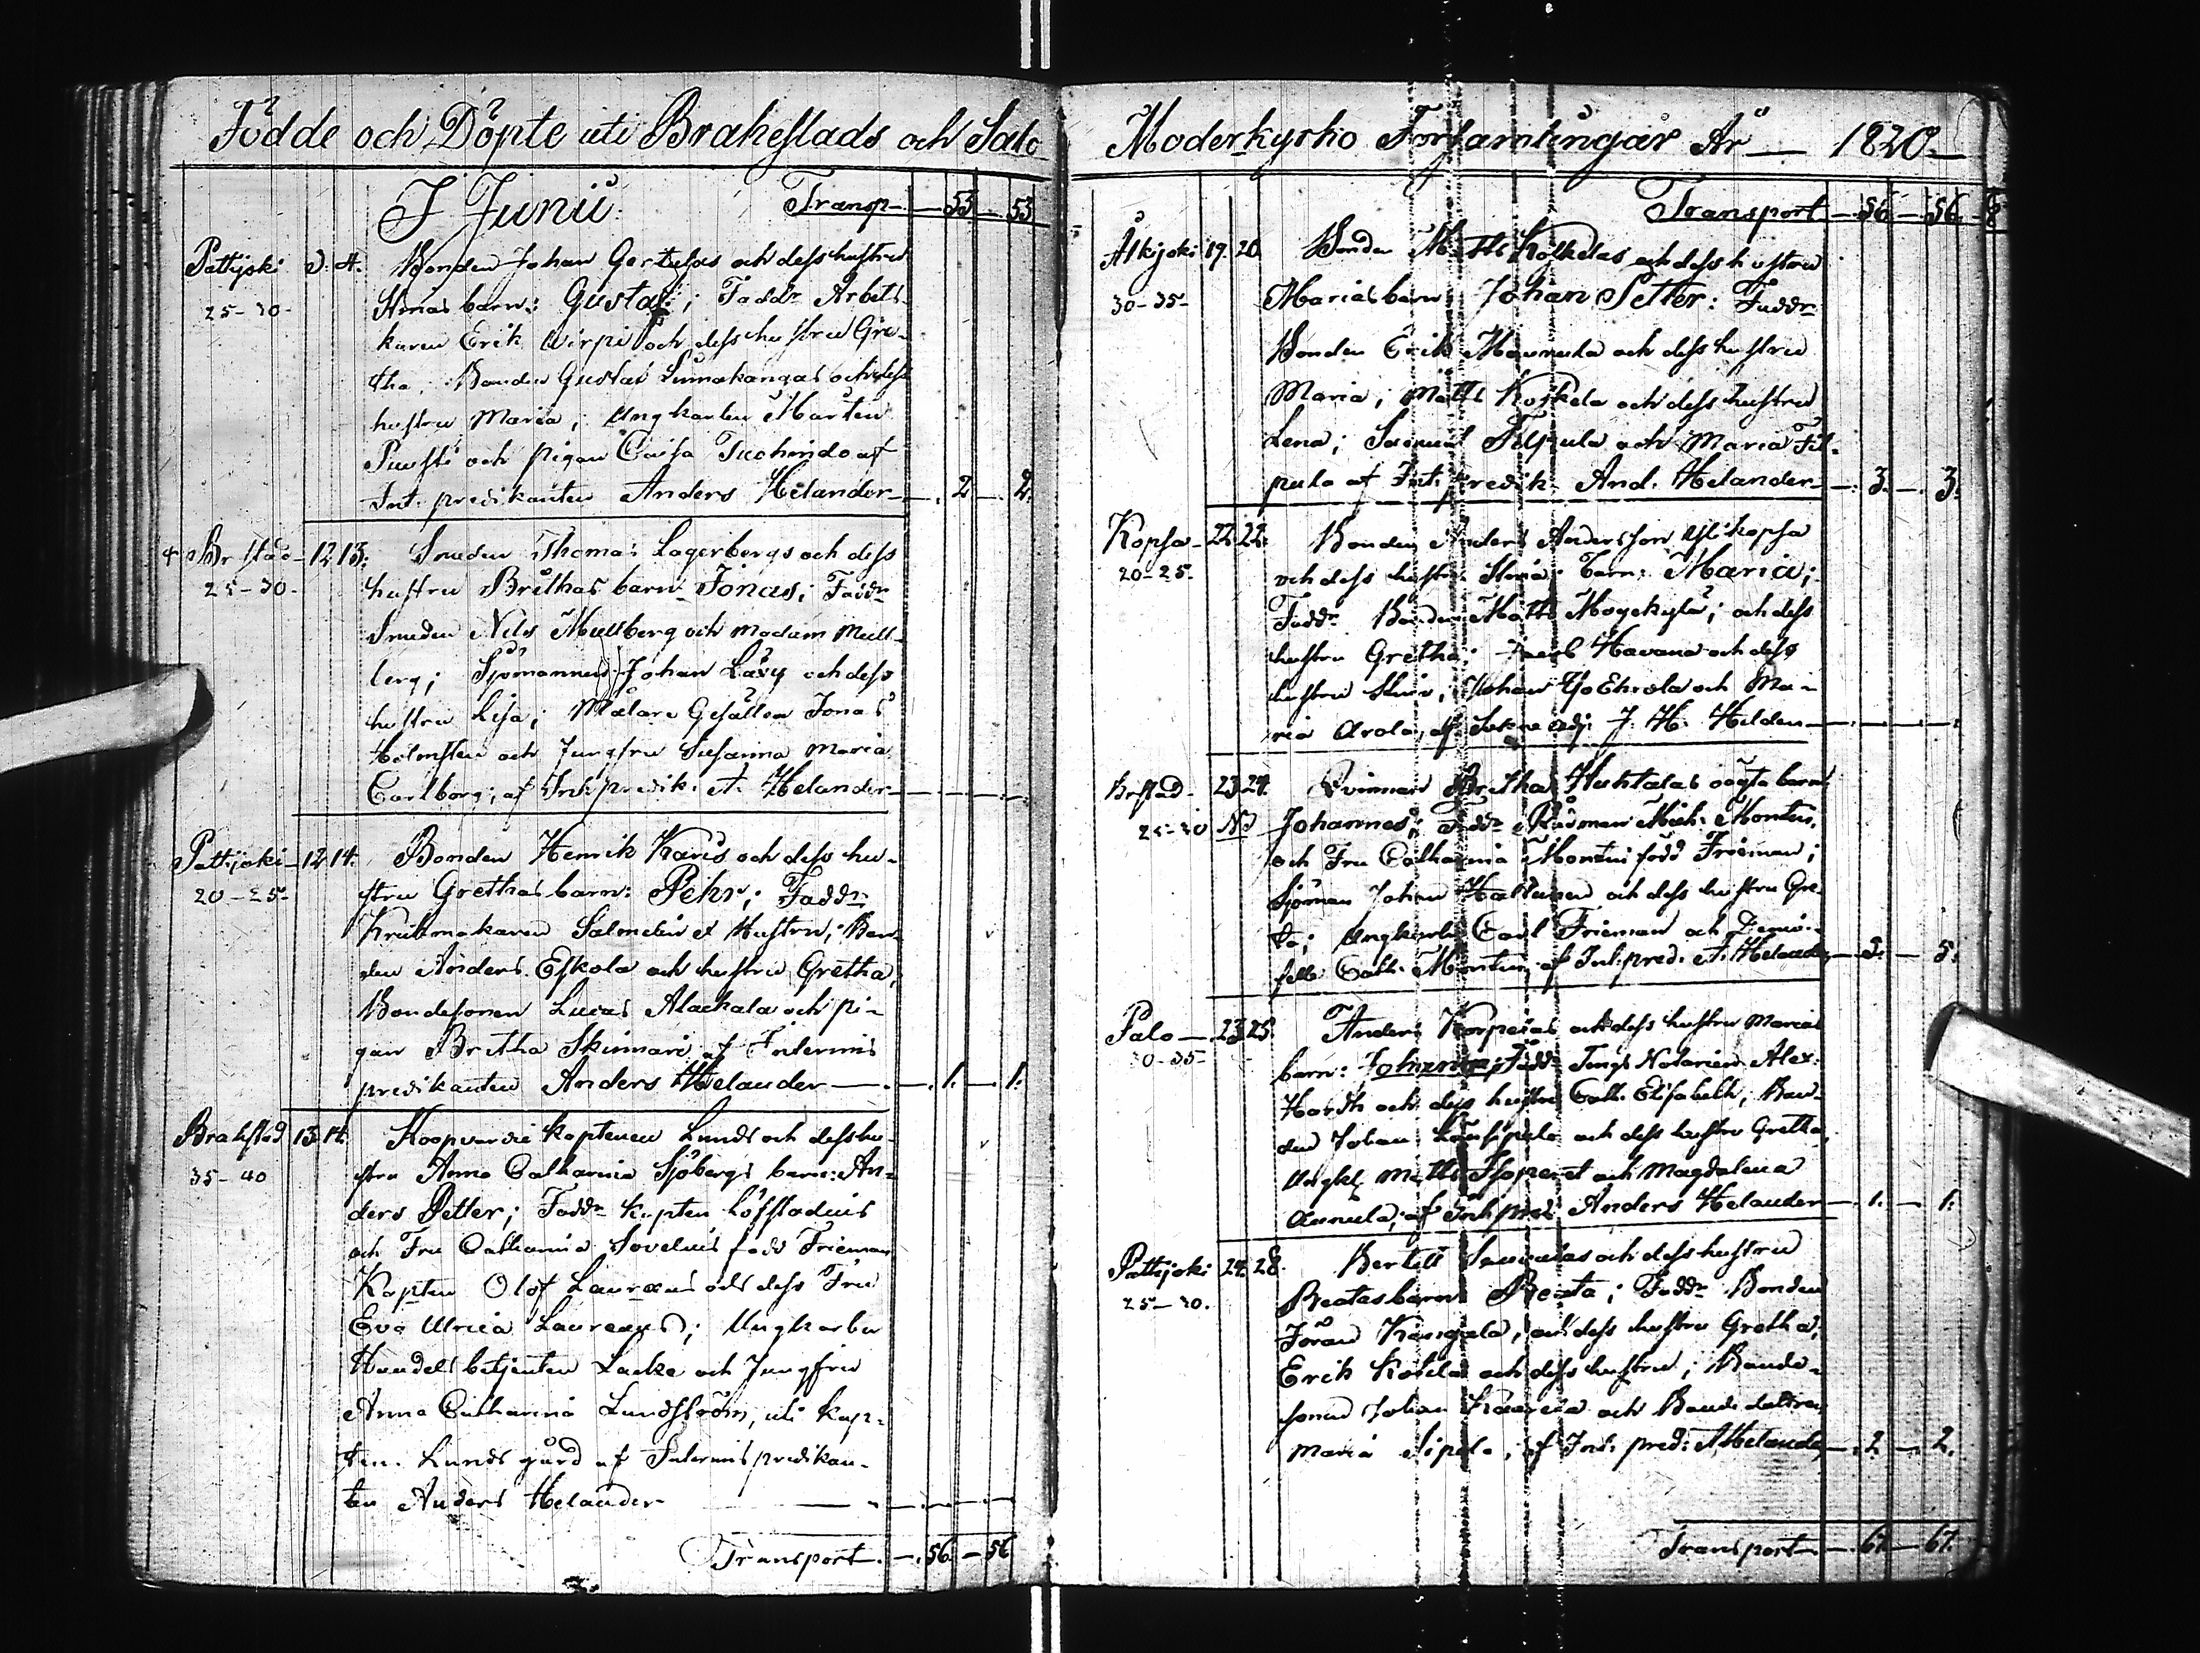 Födde och Döpte uti Brahestads och Salo
I Junii. Transp. — 53 — 53
Pattijoki 3. 4. Bonden Johan Gertulas och dess hustru
25-30. Annas barn: Gustaf; Faddr Arbets
karen Erik Wirpi och dess hustru Gre-
tha; Bonden Gustaf Linnakangas och dess
hustru Maria; Ungkarlen Mårten
och pigan Caisa af
Int. predikanten Anders Helander — 2 — 2.
Br.stad 12 13. Smeden Thomas Lagerbergs och dess
25-30. hustru Brithas barn Jonas; Faddr
Smeden Nils Mullberg och Madam Mull-
berg; Sjömannen Johan Lävy och dess
hustru Lisa; Målare Gesällen Jonas
Holmsten och Jungfru Susanna Maria
Carlborg; af Int. predik. A. Helander
Pattijoki 12 14. Bonden Henrik Karis och dess hu-
20-25. stru Grethas barn: Pehr; Faddr
Krukmakaren Salmelin et Hustru; Bon-
den Anders Eskola och hustru Gretha;
Bondesonen Lucas Alackala och pi-
gan Britha Skinnari af Interims
predikanten Anders Helander — 1. — 1.
Brahestad 13 14. Koopvardie kaptenen Lunds och dess hu-
35-40 stru Anna Catharina Sjöbergs barn: An-
ders Petter; Faddr kapten Löfstadius
och Fru Catharina Sovelius född Frieman
Kapten Olof Lauræus och dess Fru
Eva Ulrica Lauræus; Ungkarlen
Handelsbetjenten Lacke och Jungfru
Anna Catharina Lundström, uti kap-
ten Lunds gård af Interimspredikan-
ten Anders Helander
Transport. — 56 — 56
Moderkyrko Församlingar År — 1820. —
Transport — 56 — 56
Ålkijoki 19. 20. Bonden Matts Koskelas och dess hustru
30-35- Marias barn Johan Petter: Faddr
Bonden Erik Hannula och dess hustru
Maria; Matts Koskela och dess hustru
Lena; Samuel Filpula och Maria Fil-
pula af Int. predik. And. Helander — 3. — 3.
Kopsa 22. 22. Bonden Anders Andersson Ylikopsa
20-25- och dess hustru barn: Maria;
Faddr Bonden Matts och dess
hustru Gretha; Jacob Havana och dess
hustru Johan och Ma-
ria Arola, af J. H. Helden
Br.stad 23 24. Qvinnan Britha Huhtalas oägta barn
25-30 No Johannes; Faddr Rådman Mich. Montin.
och Fru Catharina Montin född Frieman;
Sjöman Johan och dess hustru Gre-
ta; Ungkarln Carl Frieman och Demoi-
selle Cath. Montin af Int. pred. A. Helander — 5. — 5.
Palo — 23 25. Anders Korpelas och dess hustru Marias
30-35- barn: Johanna; Faddr Tings Notarien Alex.
Hardh och dess hustru Cath. Elisabeth; Bon-
den Johan och dess hustru Gretha,
Ungk. Matts och Magdalena
Annula; af Int. pred. Anders Helander — 1. — 1.
Pattijoki 24. 28. Bertill och dess hustru
25-30. Beatas barn Beata; Faddr Bonden
Jöran Kangala, och dess hustru Gretha;
Erik Koskela och dess hustru; Bonde-
sonen Johan och Bondedottren
Maria Sipola, af Int. pred: A Helander — 2 — 2.
Transport. — 67. — 67.